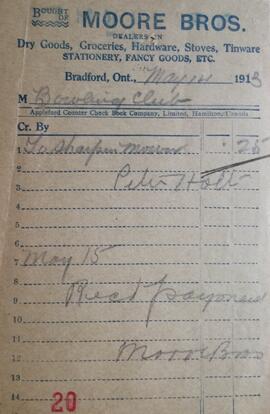 BOUGHT OF
MOORE BROS.
DEALERS IN
Dry Goods, Groceries, Hardware, Stoves, Tinware
STATIONERY, FANCY GOODS, ETC.
Bradford, Ont., May 1913
M Bowling Club
Appleford Counter Check Book Company, Limited, Hamilton, Canada
Cr. By
1 To Sharpen mower 25
2 Peter Holt
3
4
5
6
7 May 15
8
9 Rec'd payment
10
11
12 Moore Bros
13
14
20